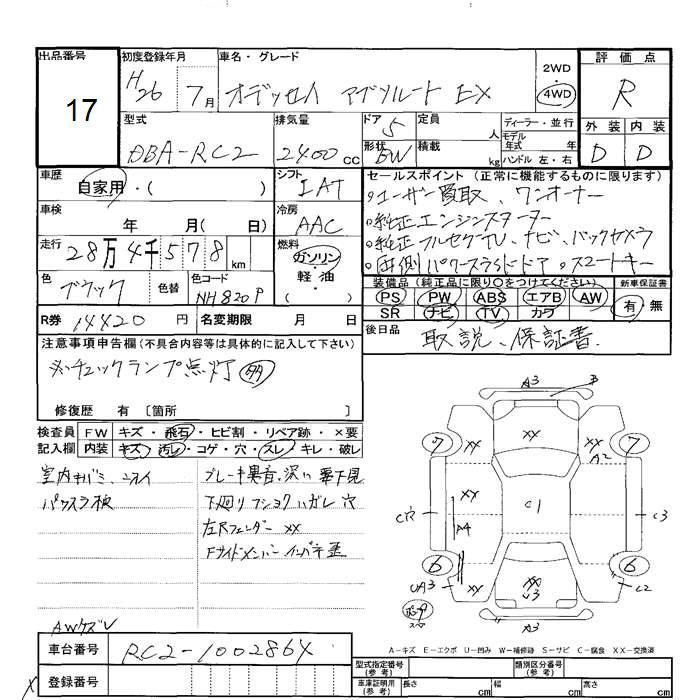 出品番号
17
初度登録年月
H26 7月
車名・グレード
オデッセイ アブソルート EX
2WD
4WD
評価点
R
外装 内装
D D
型式
DBA-RC2
排気量
2400cc
ドア 5
形状 BW
定員 人
積載 kg
ディーラー・並行
モデル年式 年
ハンドル 左・右
車歴
自家用・( )
シフト
IAT
セールスポイント (正常に機能するものに限ります)
・ユーザー買取、ワンオーナー
・純正エンジンスターター
・純正フルセグTV、ナビ、バックカメラ
・両側パワースライドドア ・スマートキー
車検
年 月( 日)
冷房
AAC
走行
28万4千578km
燃料
ガソリン
・
軽・油
( )
色
ブラック
色替
色コード
NH820P
装備品 (純正品に限り○をつけてください)
PS PW ABS エアB AW
SR ナビ TV カワ
新車保証書
有・無
R券 14420円
名変期限 月 日
後日品
取説、保証書
注意事項申告欄(不具合内容等は具体的に記入して下さい)
チェックランプ点灯
修復歴 有〔箇所 〕
検査員記入欄
FW キズ・飛石・ヒビ割・リペア跡・×要
内装 キズ・汚レ・コゲ・穴・スレ・キレ・破レ
室内キバミ、ニオイ
ブレーキ異音、渋い 要下見
パワスラ検
下回りフショク ハガレ 穴
左Rフェンダー XX
Fサイドメンバー インパネ歪
A3 B
7 XX XX XX 7
A2
XX
C穴 A4 C1 C3
6 XX XX XX 6
UA3 U3 C2
A3
AWケズレ
A-キズ E-エクボ U-凹み W-補修跡 S-サビ C-腐食 XX-交換済
車台番号
RC2-1002864
登録番号
型式指定番号(参考)
類別区分番号(参考)
車庫証明用(参考)
長さ cm
幅 cm
高さ cm